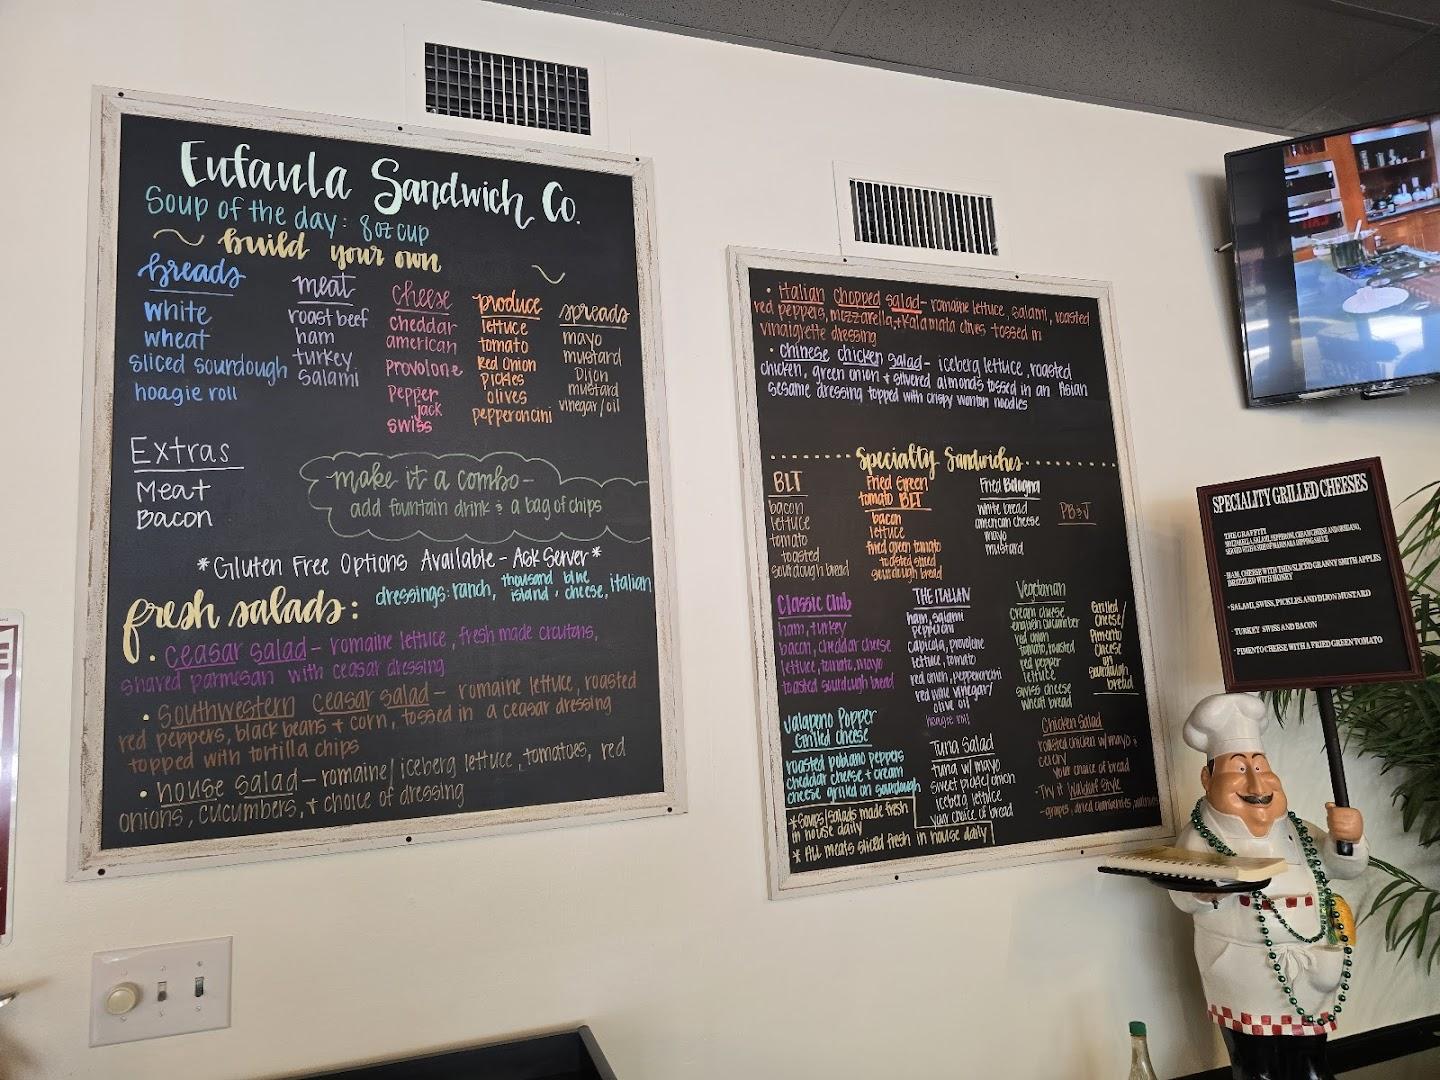 Eufaula Sandwich Co.
Soup of the day: 8oz cup
build your own
breads
white
wheat
sliced sourdough
hoagie roll
meat
roast beef
ham
turkey
salami
cheese
cheddar
american
provolone
pepper
jack
swiss
produce
lettuce
tomato
Red Onion
pickles
olives
pepperoncini
spreads
mayo
mustard
Dijon
mustard
vinegar/oil
Extras
Meat
Bacon
make it a combo-
add fountain drink & a bag of chips
*Gluten Free Options Available - Ask Server*
fresh salads:
dressings: ranch, thousand island, blue cheese, italian
• ceasar salad - romaine lettuce, fresh made croutons,
shaved parmesan with ceasar dressing
• southwestern ceasar salad - romaine lettuce, roasted
red peppers, black beans + corn, tossed in a ceasar dressing
topped with tortilla chips
• house salad - romaine/iceberg lettuce, tomatoes, red
onions, cucumbers, + choice of dressing
• italian chopped salad - romaine lettuce, salami, roasted
red peppers, mozzarella, + kalamata olives tossed in
vinaigrette dressing
• chinese chicken salad - iceberg lettuce, roasted
chicken, green onion + slivered almonds tossed in an Asian
sesame dressing topped with crispy wonton noodles
Specialty Sandwiches
BLT
bacon
lettuce
tomato
toasted
sourdough bread
Fried Green
tomato BLT
bacon
lettuce
fried green tomato
toasted sliced
sourdough bread
Fried Bologna
white bread
american cheese
mayo
mustard
PB&J
Classic Club
ham, turkey
bacon, cheddar cheese
lettuce, tomato, mayo
toasted sourdough bread
THE ITALIAN
ham, salami
pepperoni
capicola, provolone
lettuce, tomato
red onion, pepperoncini
red wine vinegar/
olive oil
hoagie roll
Vegetarian
cream cheese
english cucumber
red onion
tomato, roasted
red pepper
lettuce
swiss cheese
wheat bread
Grilled
cheese/
Pimento
cheese
on
sourdough
bread
Jalapeno Popper
Grilled cheese
roasted poblano peppers
cheddar cheese + cream
cheese grilled on sourdough
Tuna Salad
tuna w/ mayo
sweet pickle/onion
iceberg lettuce
your choice of bread
Chicken Salad
roasted chicken w/ mayo &
celery
your choice of bread
- Try it Waldorf Style
- grapes, dried cranberries, walnuts
*Soups/Salads made fresh
in house daily
* All meats sliced fresh in house daily
SPECIALITY GRILLED CHEESES
THE GRAFFITY
MOZZARELLA, SALAMI, PEPPERONI, CREAM CHEESE AND OREGANO,
SERVED WITH A SIDE OF MARINARA DIPPING SAUCE
- HAM, CHEESE WITH THIN SLICED GRANNY SMITH APPLES
DRIZZLED WITH HONEY
- SALAMI, SWISS, PICKLES AND DIJON MUSTARD
- TURKEY SWISS AND BACON
- PIMENTO CHEESE WITH A FRIED GREEN TOMATO